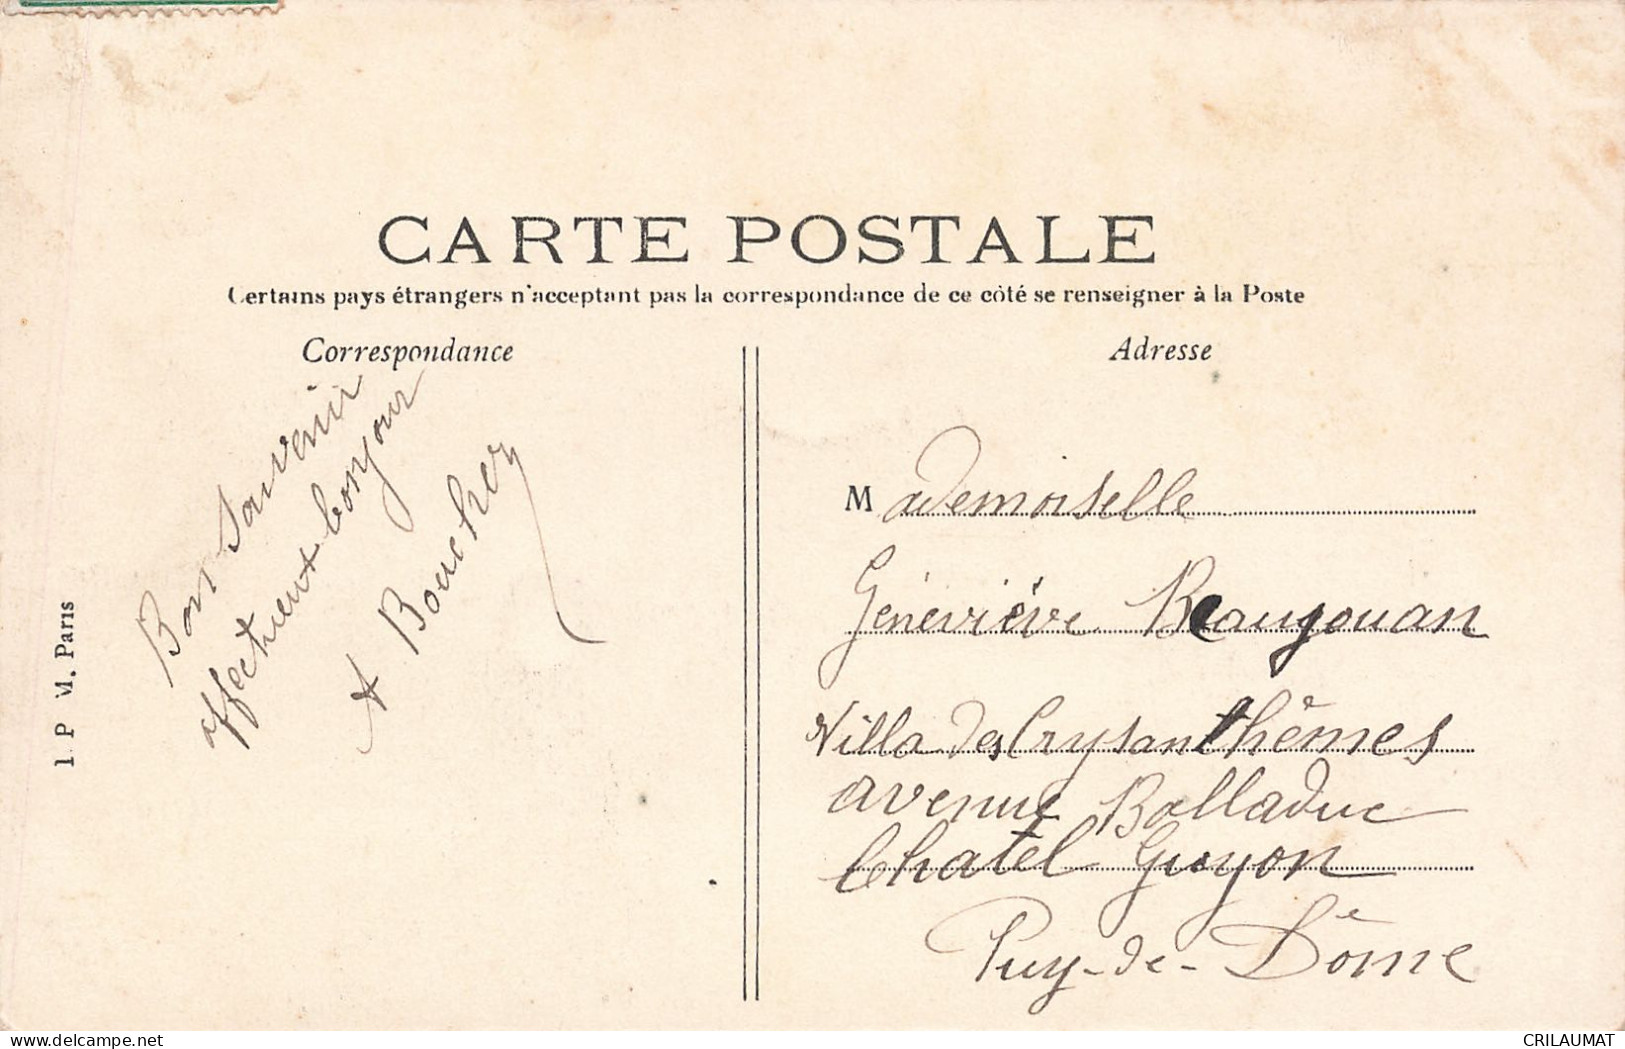 CARTE POSTALE
Certains pays étrangers n'acceptant pas la correspondance de ce côté se renseigner à la Poste
Correspondance
Bon Souvenir
affectueux bonjour
A Boucher
I. P. M. Paris
Adresse
Mademoiselle
Géneviève Beaugouan
Villa des Crysanthêmes
avenue Balladuc
Chatel Guyon
Puy-de-Dôme
www.delcampe.net
CRILAUMAT